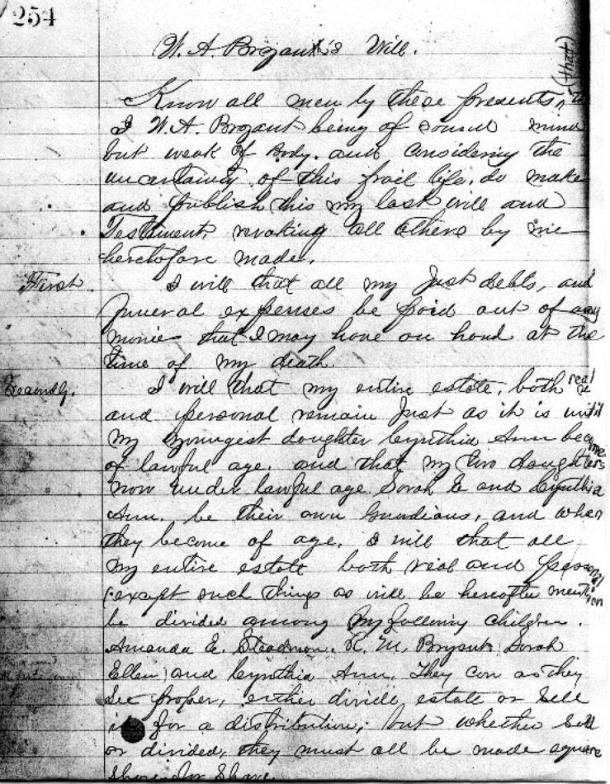 254
W. A. Bryant's Will.
Know all men by these presents, (that)
I W. A. Bryant being of sound mind
but weak of Body. and considering the
uncertainty of this frail life. do make
and publish this my last will and
Testiment, revoking all others by me
heretofore made.
First I will that all my Just debts, and
funeral expenses be paid out of any
monies that I may have on hand at the
time of my death
Secondly. I will that my entire estate, both real
and personal remain Just as it is until
my youngest daughter Cynthia Ann become
of lawful age. and that my two daughters
now under lawful age Sarah E and Cynthia
Ann. be their own Guardians, and when
they become of age. I will that all
my entire estate both real and personal
(except such things as will be hereafter mention
be divided among my following children.
Amanda E. Steadman. R. M. Bryant Sarah
Ellen) and Cynthia Ann. They can as they
see proper, either divide estate or sell
it for a distribution; but whether sell
or divided, they must all be made square
Share for Share